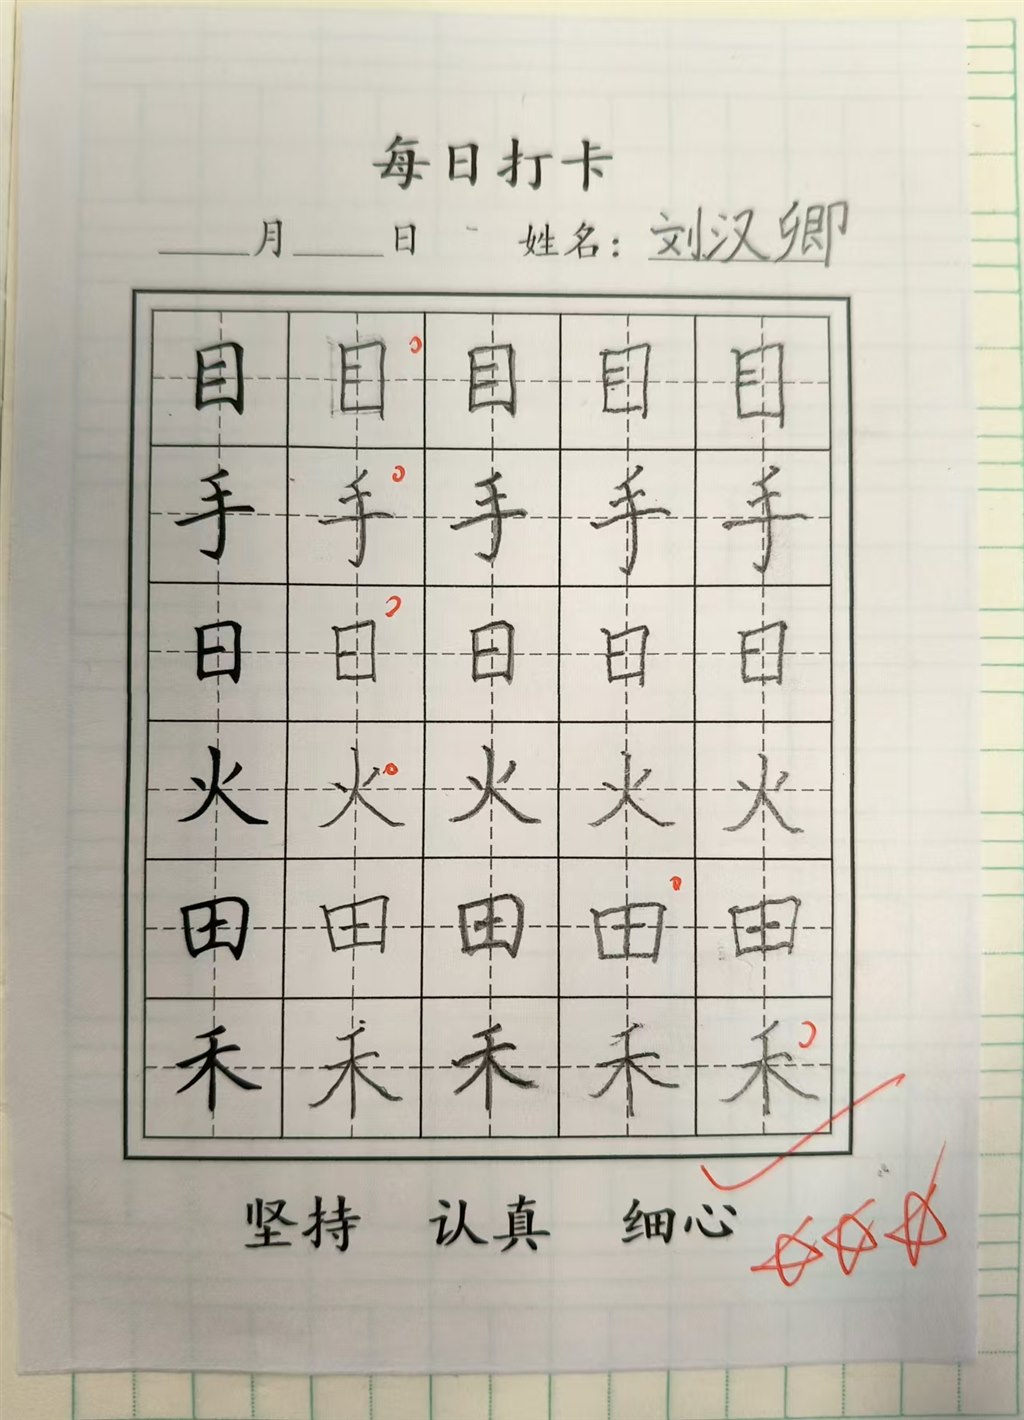 每日打卡
____月____日 姓名：刘汉卿
目 目 目 目 目
手 手 手 手 手
日 日 日 日 日
火 火 火 火 火
田 田 田 田 田
禾 禾 禾 禾 禾
坚持 认真 细心